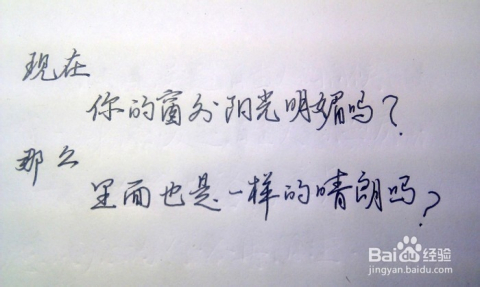 现在
你的窗外阳光明媚吗？
那么
里面也是一样的晴朗吗？
Baidu 经验
jingyan.baidu.com